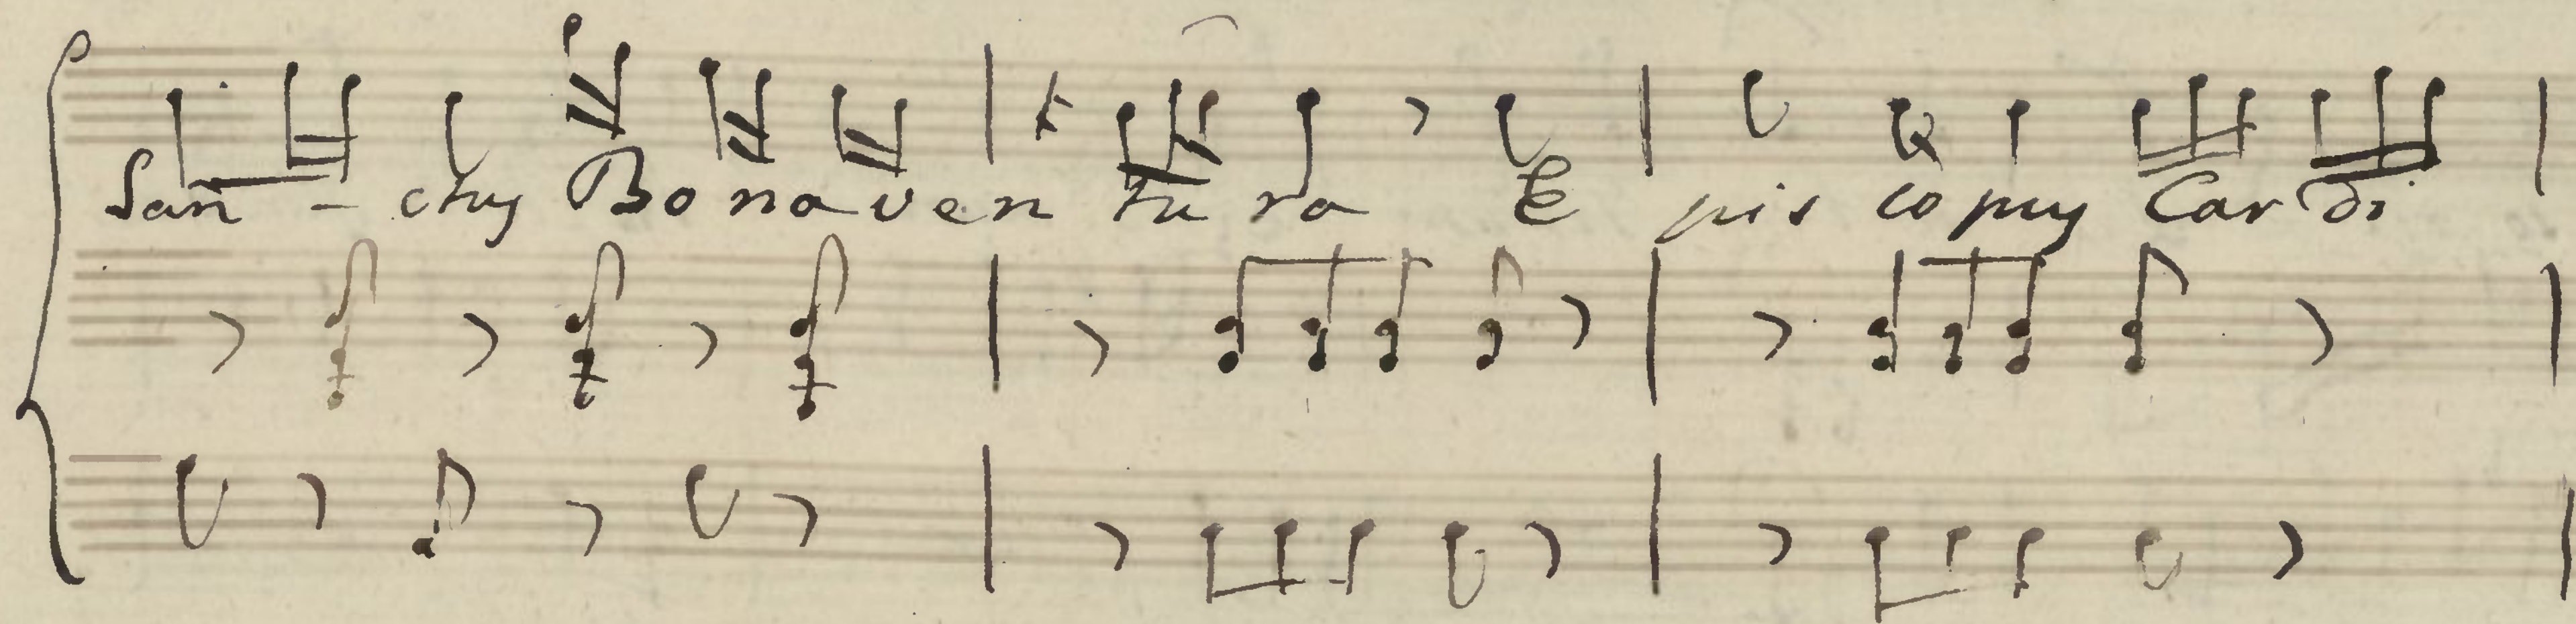 San - ctus Bo na ven tu ra E pis co pus Car di